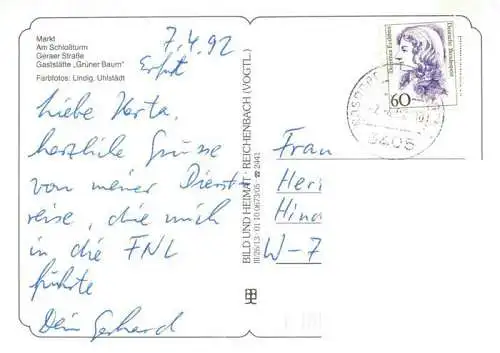 Markt
Am Schloßturm
Geraer Straße
Gaststätte „Grüner Baum"
Farbfotos: Lindig, Uhlstädt
7.4.92
Erfurt
Liebe Herta,
herzliche Grüsse
von meiner Dienst-
reise, die mich
in die FNL
führte
Dein Gerhard
BILD UND HEIMAT · REICHENBACH (VOGTL.)
III/26/13 · 01 10 0673/05 · ☎ 2441
Dorothea Erxleben
Deutsche Bundespost
60
Frau
Heri
Hinda
W-7